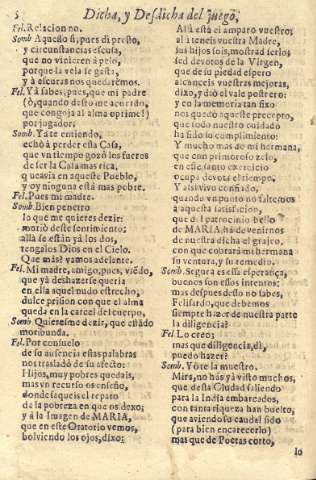 5 Dicha, y Desdicha del juego,
Fel. Relacion no.
Somb. Aquesso si, pues di presto,
y circunstancias escusa,
que no vinieren à pelo,
porque la vela se gasta,
y à escuras nos quedaremos.
Fel. Ya sabes, pues, que mi padre
(ò, quando desto me acuerdo,
que congoja al alma oprime!)
por jugador;
Somb. Ya te entiendo,
echò à perder esta Casa,
que vn tiempo gozò los fueros
de ser la Casa mas rica,
que avia en aqueste Pueblo,
y oy ninguna està mas pobre.
Fel. Pues mi madre.
Somb. Bien penetro
lo que me quieres dezir:
muriò deste sentimiento;
allà se estàn yà los dos,
tengalos Dios en el Cielo.
Que màs? vamos adelante.
Fel. Mi madre, amigo, pues, viẽdo,
que yà deshazerse queria
en ella aquel nudo estrecho,
dulce prision con que el alma
queda en la carcel del cuerpo,
Somb. Quieresme dezir, que estãdo
moribunda.
Fel. Por consuelo
de su ausencia estas palabras
nos trasladò de su afecto:
Hijos, muy pobres quedais,
mas vn recurso os enseño,
donde saqueis el reparo
de la pobreza en que os dexo;
y à la Imagen de MARIA,
que en este Oratorio vemos,
bolviendo los ojos, dixo:
Alli està el amparo vuestro;
alli teneis vuestra Madre,
sus hijos sois, mostrad serlo;
sed devotos de la Virgen,
que de su piedad espero
alcanceis vuestras mejoras,
dixo, y diò el vale postrero:
y en la memoria tan fixo
nos quedò aqueste precepto,
que todo nuestro cuidado
ha sido su cumplimiento:
Y mucho mas de mi hermana,
que con primoroso zelo,
en este santo exercicio
ocupa devota el tiempo.
Y assi vivo confiado,
quando vn punto no faltemos
à aquesta satisfacion,
que de el patrocinio bello
de MARIA ha de venirnos
de nuestra dicha el grajeo,
con que cobrarà mi hermana
su ventura, y su remedio.
Somb. Segura es essa esperança,
buenos son essos intentos:
mas despues desto no sabes,
Felisardo, que debemos
siempre hazer de nuestra parte
la diligencia?
Fel. Lo creo;
mas que diligencia, di,
puedo hazer?
Somb. Yo te la muestro.
Mira, no hàs yà visto muchos,
que desta Ciudad saliendo
para la India embarcados,
con tanta riqueza han buelto,
que aviendo su caudal sido
(para bien encarecerlo)
mas que de Poetas corto,
lo